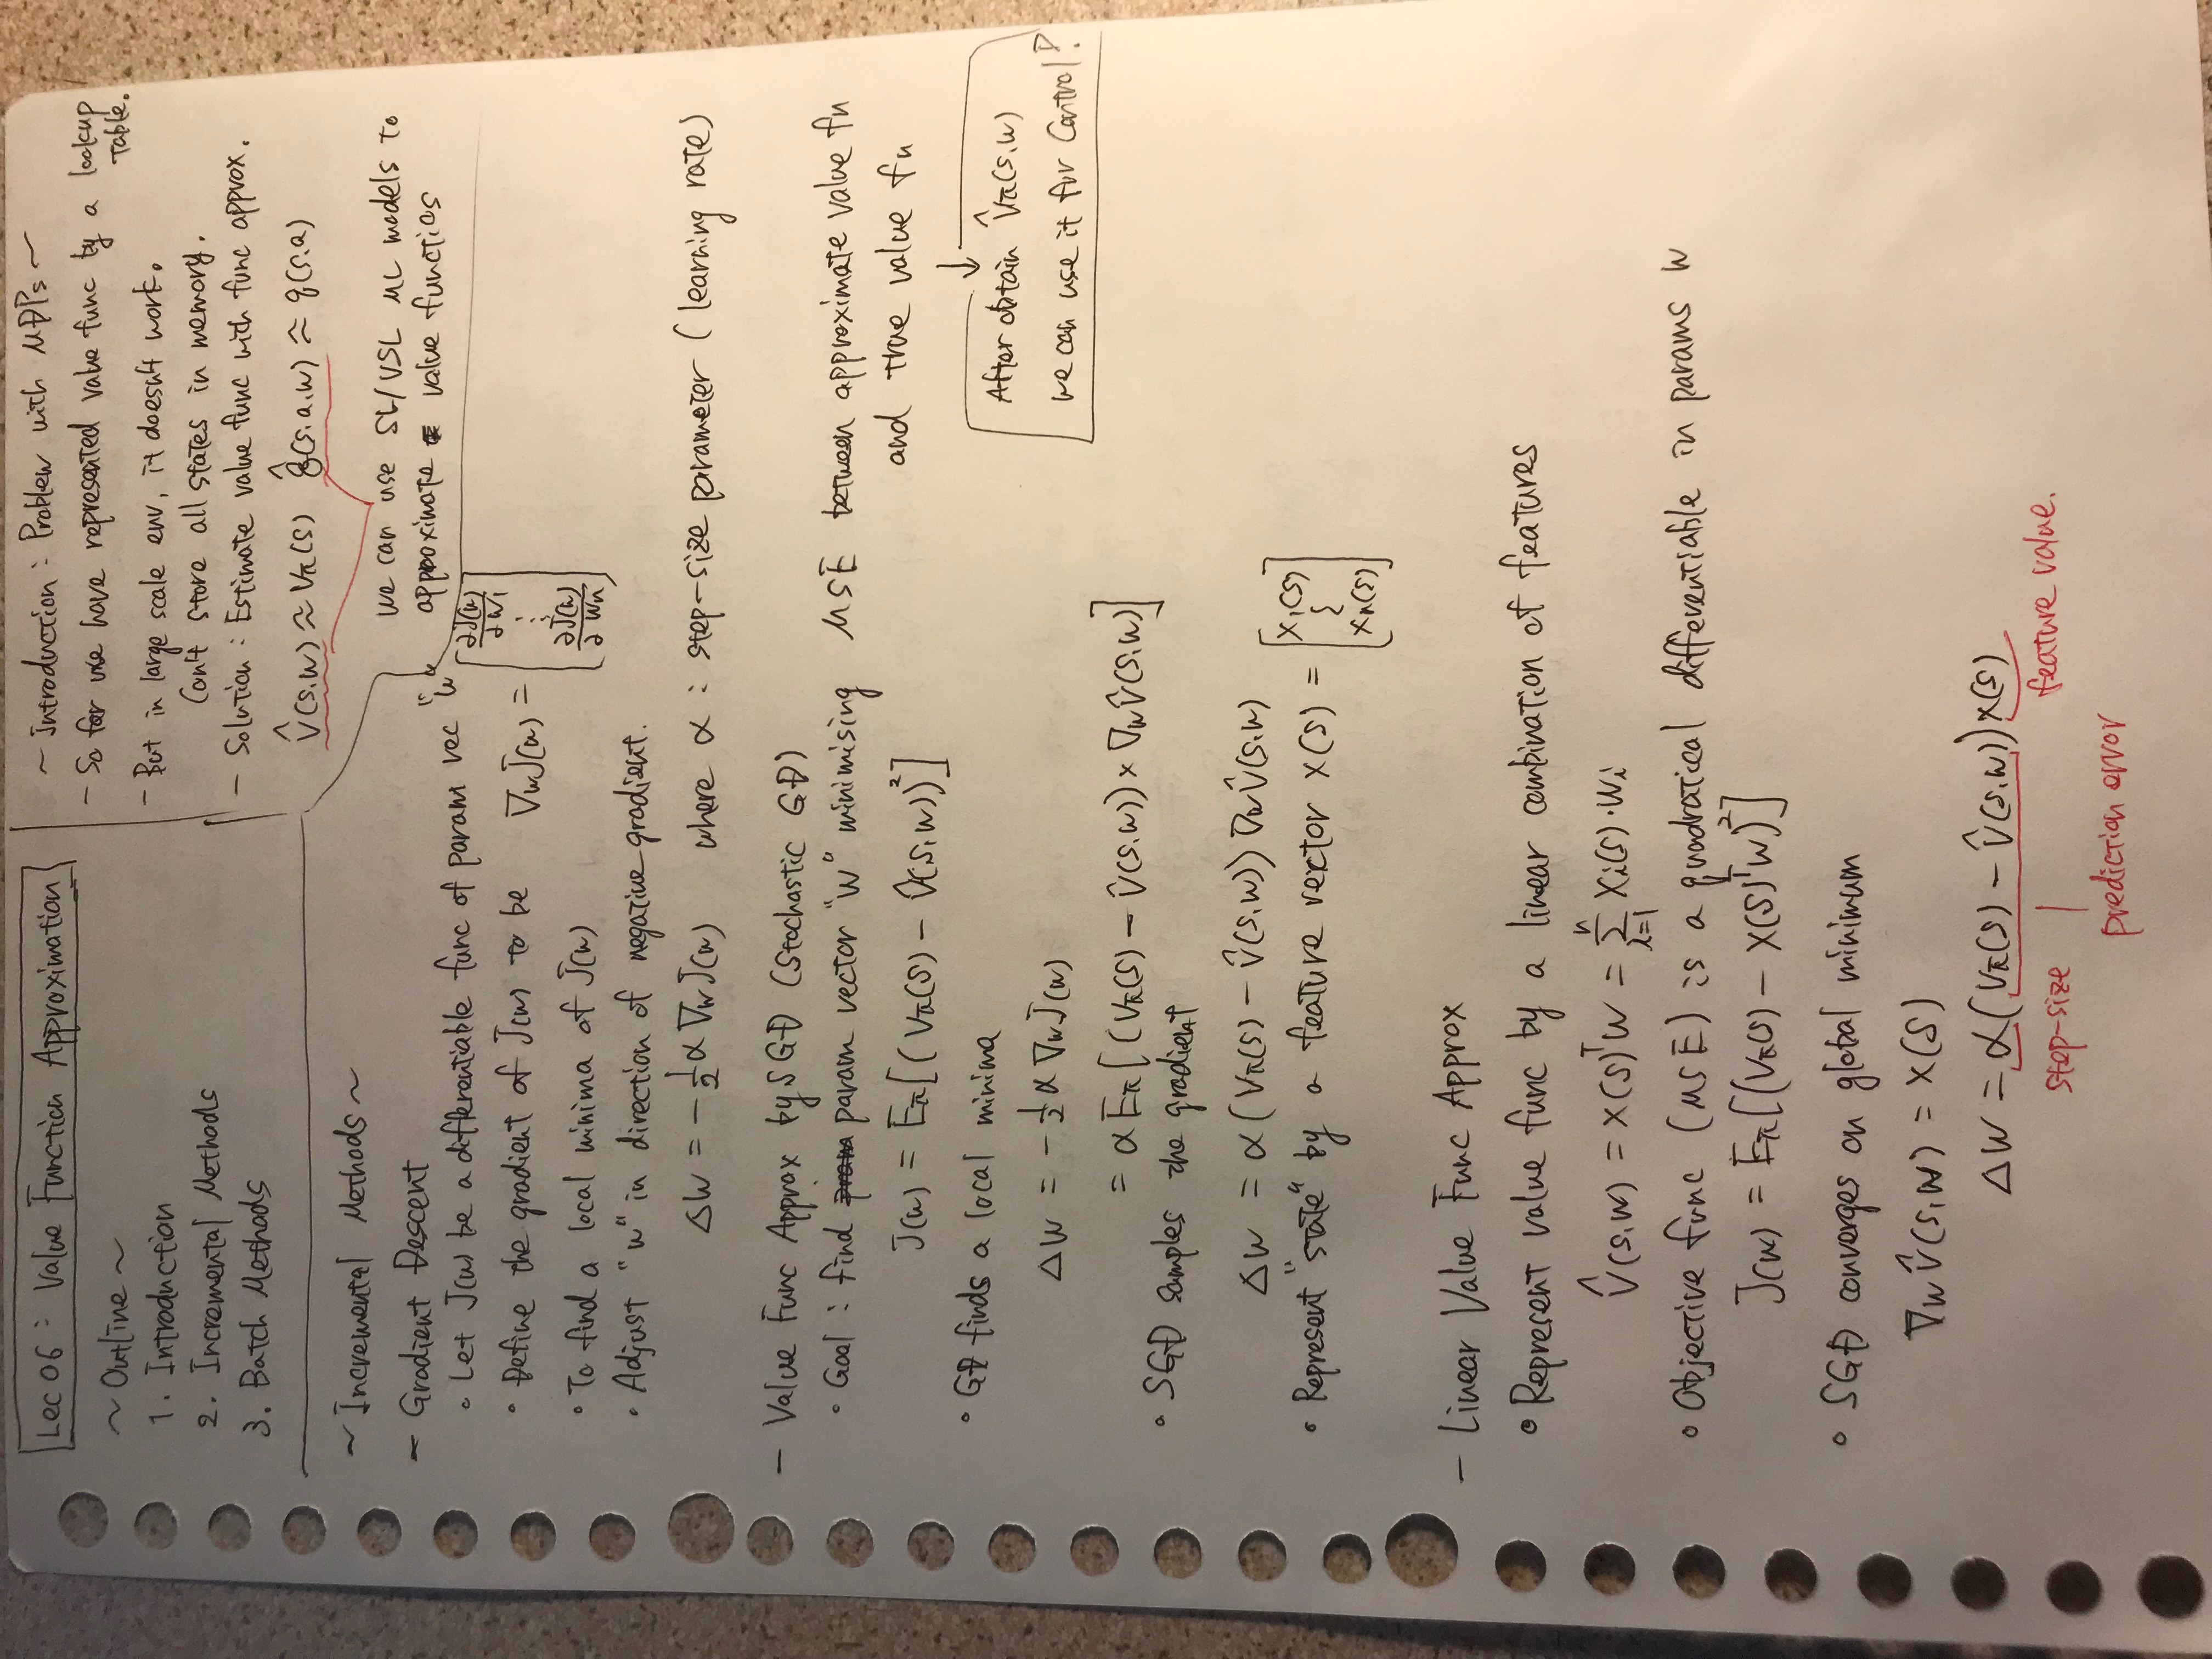 Lec 06 : Value Function Approximation
~ Outline ~
1. Introduction
2. Incremental Methods
3. Batch Methods
~ Introduction : Problem with MDPs ~
- So far we have represented value func by a lookup
table.
- But in large scale env, it doesn't work.
Can't store all states in memory.
- Solution : Estimate value func with func approx.
v̂(s,w) ≈ vπ(s) q̂(s,a,w) ≈ q(s,a)
we can use SL/USL ML models to
approximate value functios
~ Incremental Methods ~
- Gradient Descent
• Let J(w) be a differentiable func of param vec "w"
• Define the gradient of J(w) to be ∇wJ(w) = [∂J(w)/∂w1 ⋮ ∂J(w)/∂wn]
• To find a local minima of J(w)
• Adjust "w" in direction of negative gradient.
Δw = -1/2 α ∇wJ(w) where α : step-size parameter (learning rate)
- Value Func Approx by SGD (Stochastic GD)
• Goal : find param vector "w" minimising MSE between approximate value fn
and true value fn
J(w) = Eπ[(vπ(S) - v̂(S,w))²]
↓
After obtain v̂π(s,w)
we can use it for Control!
• GD finds a local minima
Δw = -1/2 α ∇wJ(w)
= α Eπ[(vπ(S) - v̂(S,w)) × ∇w v̂(S,w)]
• SGD samples the gradient
Δw = α(vπ(S) - v̂(S,w)) ∇w v̂(S,w)
• Represent "state" by a feature vector x(S) = [x1(S) ⋮ xn(S)]
- Linear Value Func Approx
• Represent value func by a linear combination of features
v̂(S,w) = x(S)ᵀw = Σ i=1 n xi(S)·wi
• Objective func (MSE) is a quadratical differentiable in params w
J(w) = Eπ[(vπ(S) - x(S)ᵀw)²]
• SGD converges on global minimum
∇w v̂(S,w) = x(S)
Δw = α(vπ(S) - v̂(S,w))x(S)
step-size feature value.
prediction error